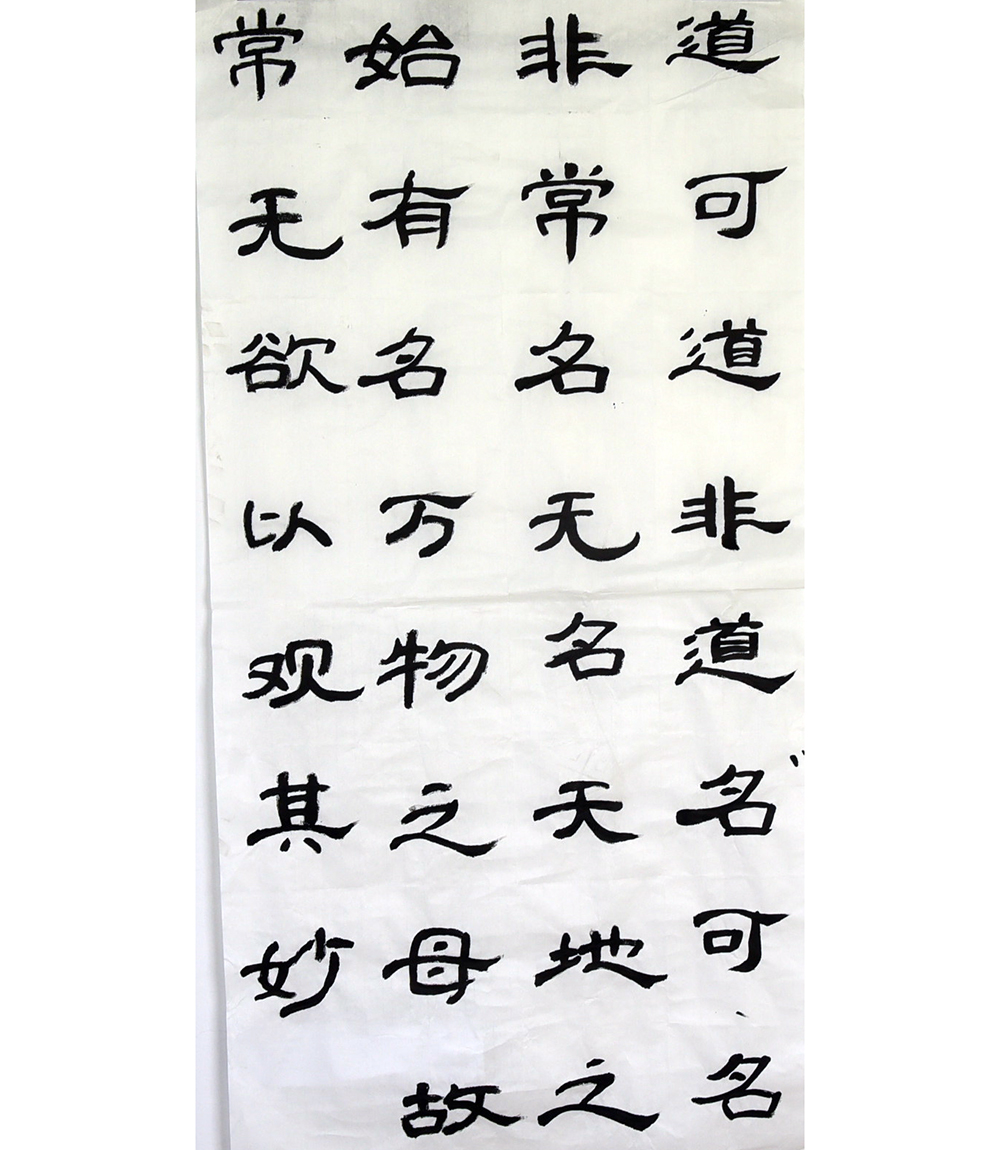 道可道非道名可名
非常名无名天地之
始有名万物之母故
常无欲以观其妙